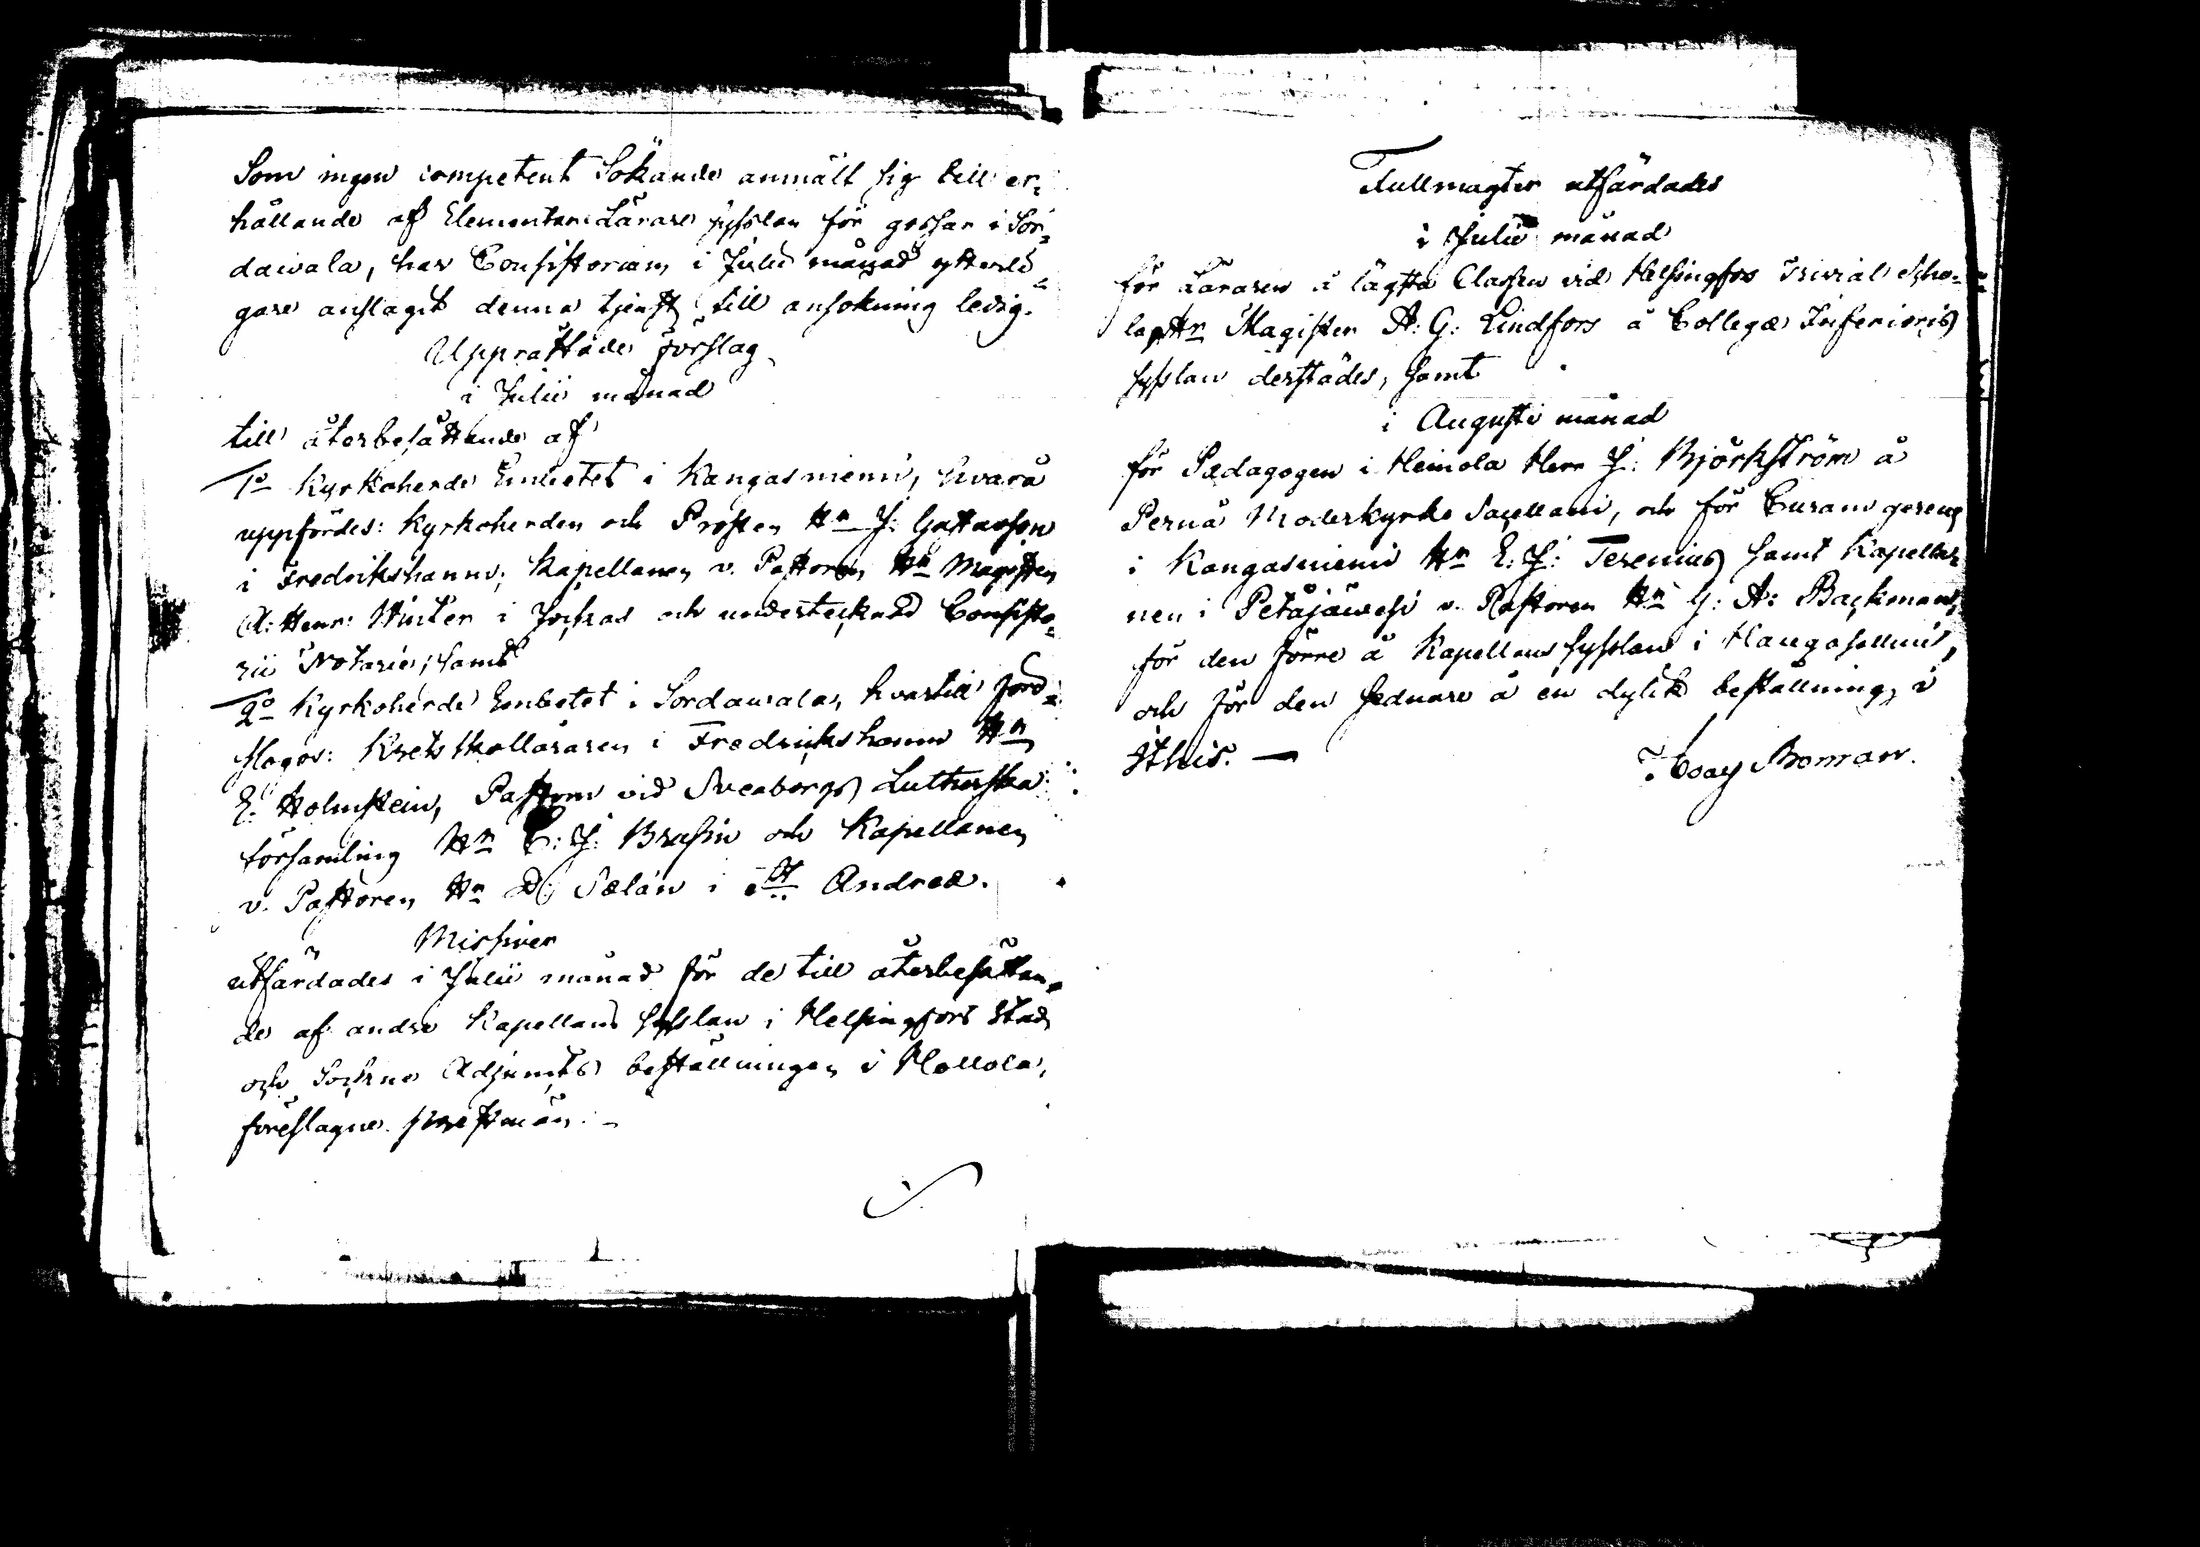 Som ingen competent Sökande anmält sig till er-
hållande af Elementar Lärare sysslan för gossar i Sor-
dawala, har Consistorium i Julii månad ytterli-
gare anslagit denna tjenst till ansökning ledig.
Upprättade förslag
i Julii månad
till återbesättande af
1o Kyrkoherde Embetet i Kangasniemi, hvarå
uppfördes: Kyrkoherden och Prosten Hr J: Gustavson
i Fredrikshamn, Kapellanen v. Pastoren Hr Magister
A: Henr: Winter i Jockas och undertecknad Consisto-
rii Notarie; samt
2o Kyrkoherde Embetet i Sordawala, hvartill före-
slogos: Kretsskolläraren i Fredrikshamn Hr
E. Holmstein, Pastorn vid Sveaborgs Lutherska
församling Hr C: J: Brusin och Kapellanen
v. Pastoren Hr D: Selén i St Andreæ.
Missiver
utfärdades i Julii månad för de till återbesättan-
de af andre Kapellans sysslan i Helsingfors Stad
och Sockne Adjuncts beställningen i Hollola,
föreslagne prestmän. -
Fullmagter utfärdades
i Julii månad
för Läraren å lägsta Classen vid Helsingfors Trivial Scho-
la Hr Magister A: G: Lindfors å Collegæ Inferioris
sysslan derstädes, samt
i Augusti månad
för Pædagogen i Heinola Herr J: Björkström å
Pernå Moderkyrko Sacellani, och för Curam gerens
i Kangasniemi Hr E: J: Terenius samt Kapella-
nen i Petäjäwesi v. Pastoren Hr G: A: Backman,
för den förre å Kapellans sysslan i Haugasellmi,
och för den sednare å en dylik beställning i
Ithis. —
Esay Boman.